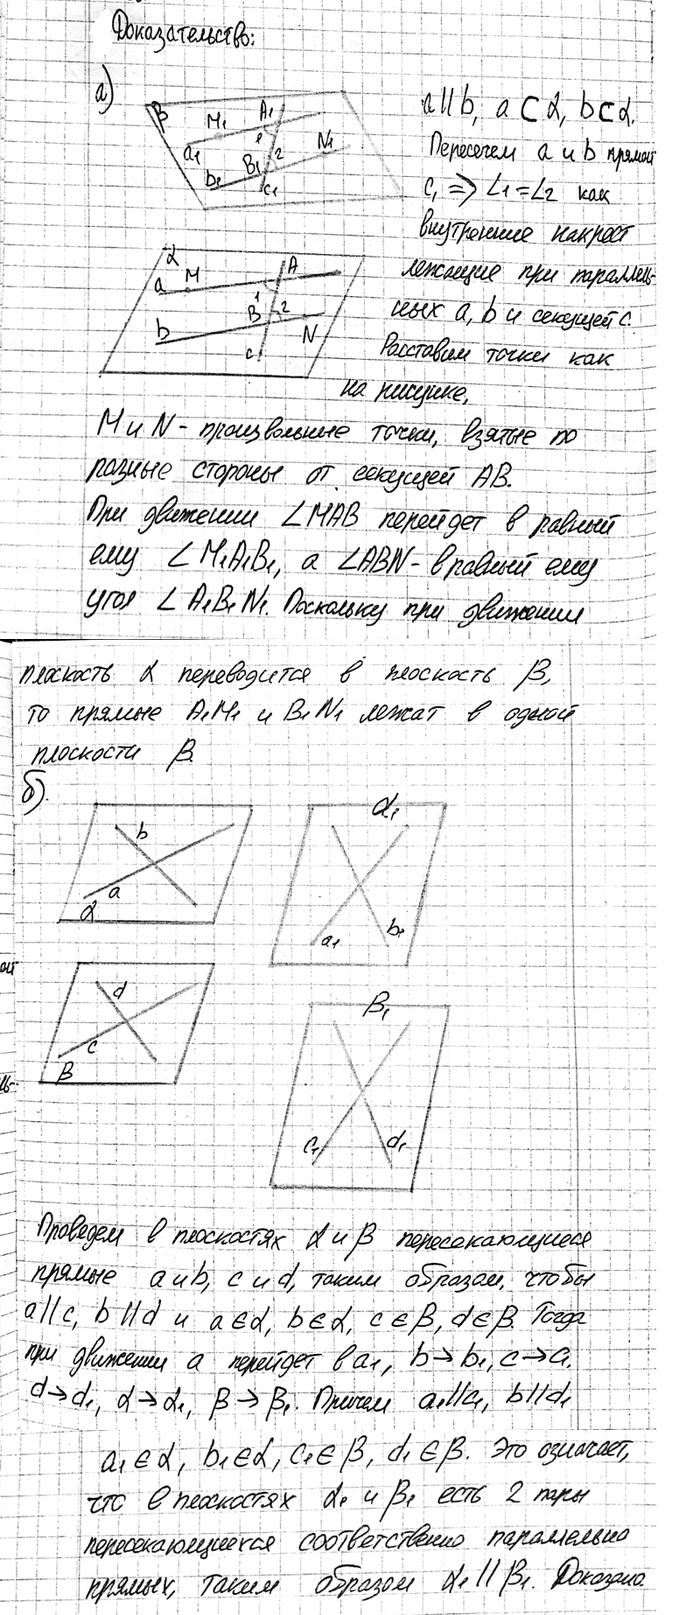 Доказательство:
а)
β
M₁
A₁
1
a₁
B₁
2
N₁
b₁
c₁
α
a
M
A
1
B
2
b
N
c
a || b, a ⊂ α, b ⊂ α.
Пересечем a и b прямой
c, => ∠1 = ∠2 как
внутренние накрест
лежащие при параллель-
ных a, b и секущей c.
Расставим точки как
на рисунке,
M и N - произвольные точки, взятые по
разные стороны от секущей AB.
При движении ∠MAB перейдет в равный
ему ∠M₁A₁B₁, а ∠ABN - в равный ему
угол ∠A₁B₁N₁. Поскольку при движении
плоскость α переводится в плоскость β,
то прямые A₁M₁ и B₁N₁ лежат в одной
плоскости β.
б).
b
a
α
α₁
a₁
b₁
d
c
β
β₁
c₁
d₁
Проведем в плоскостях α и β пересекающиеся
прямые a и b, c и d, таким образом, чтобы
a || c, b || d и a ∈ α, b ∈ α, c ∈ β, d ∈ β. Тогда
при движении a перейдет в a₁, b → b₁, c → c₁,
d → d₁, α → α₁, β → β₁. Причем a₁ || c₁, b || d₁
a₁ ∈ α, b₁ ∈ α, c₁ ∈ β, d₁ ∈ β. Это означает,
что в плоскостях α₁ и β₁ есть 2 пары
пересекающиеся соответственно параллельно
прямых, таким образом α₁ || β₁. Доказано.